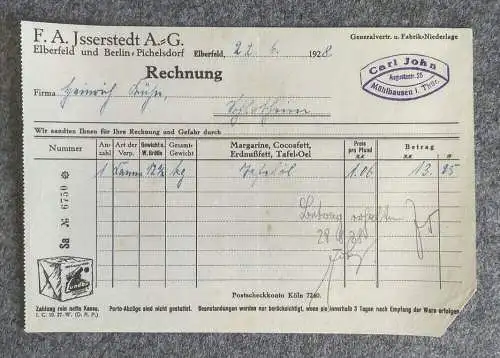 F. A. Jsserstedt A.-G.
Elberfeld und Berlin-Pichelsdorf
Generalvertr. u. Fabrik-Niederlage
Carl John
Augustastr. 25
Mühlhausen i. Thür.
Elberfeld, 22. 6. 1928
Rechnung
Firma Heinrich
Schlotheim
Wir sandten Ihnen für Ihre Rechnung und Gefahr durch
Nummer
Anzahl
Art der Verp.
Gewicht u. W. Größe
Gesamt-Gewicht
Margarine, Cocosfett, Erdnußfett, Tafel-Oel
Preis pro Pfund
Betrag
1 Kanne 12½ kg Tafelöl 1.06 13. 25
Betrag erhalten
28.6.28
John
Sa № 6750
Postscheckkonto Köln 7260.
Zahlung rein netto Kasse. Porto-Abzüge sind nicht gestattet. Beanstandungen werden nur berücksichtigt, wenn sie innerhalb 3 Tagen nach Empfang der Ware erfolgen